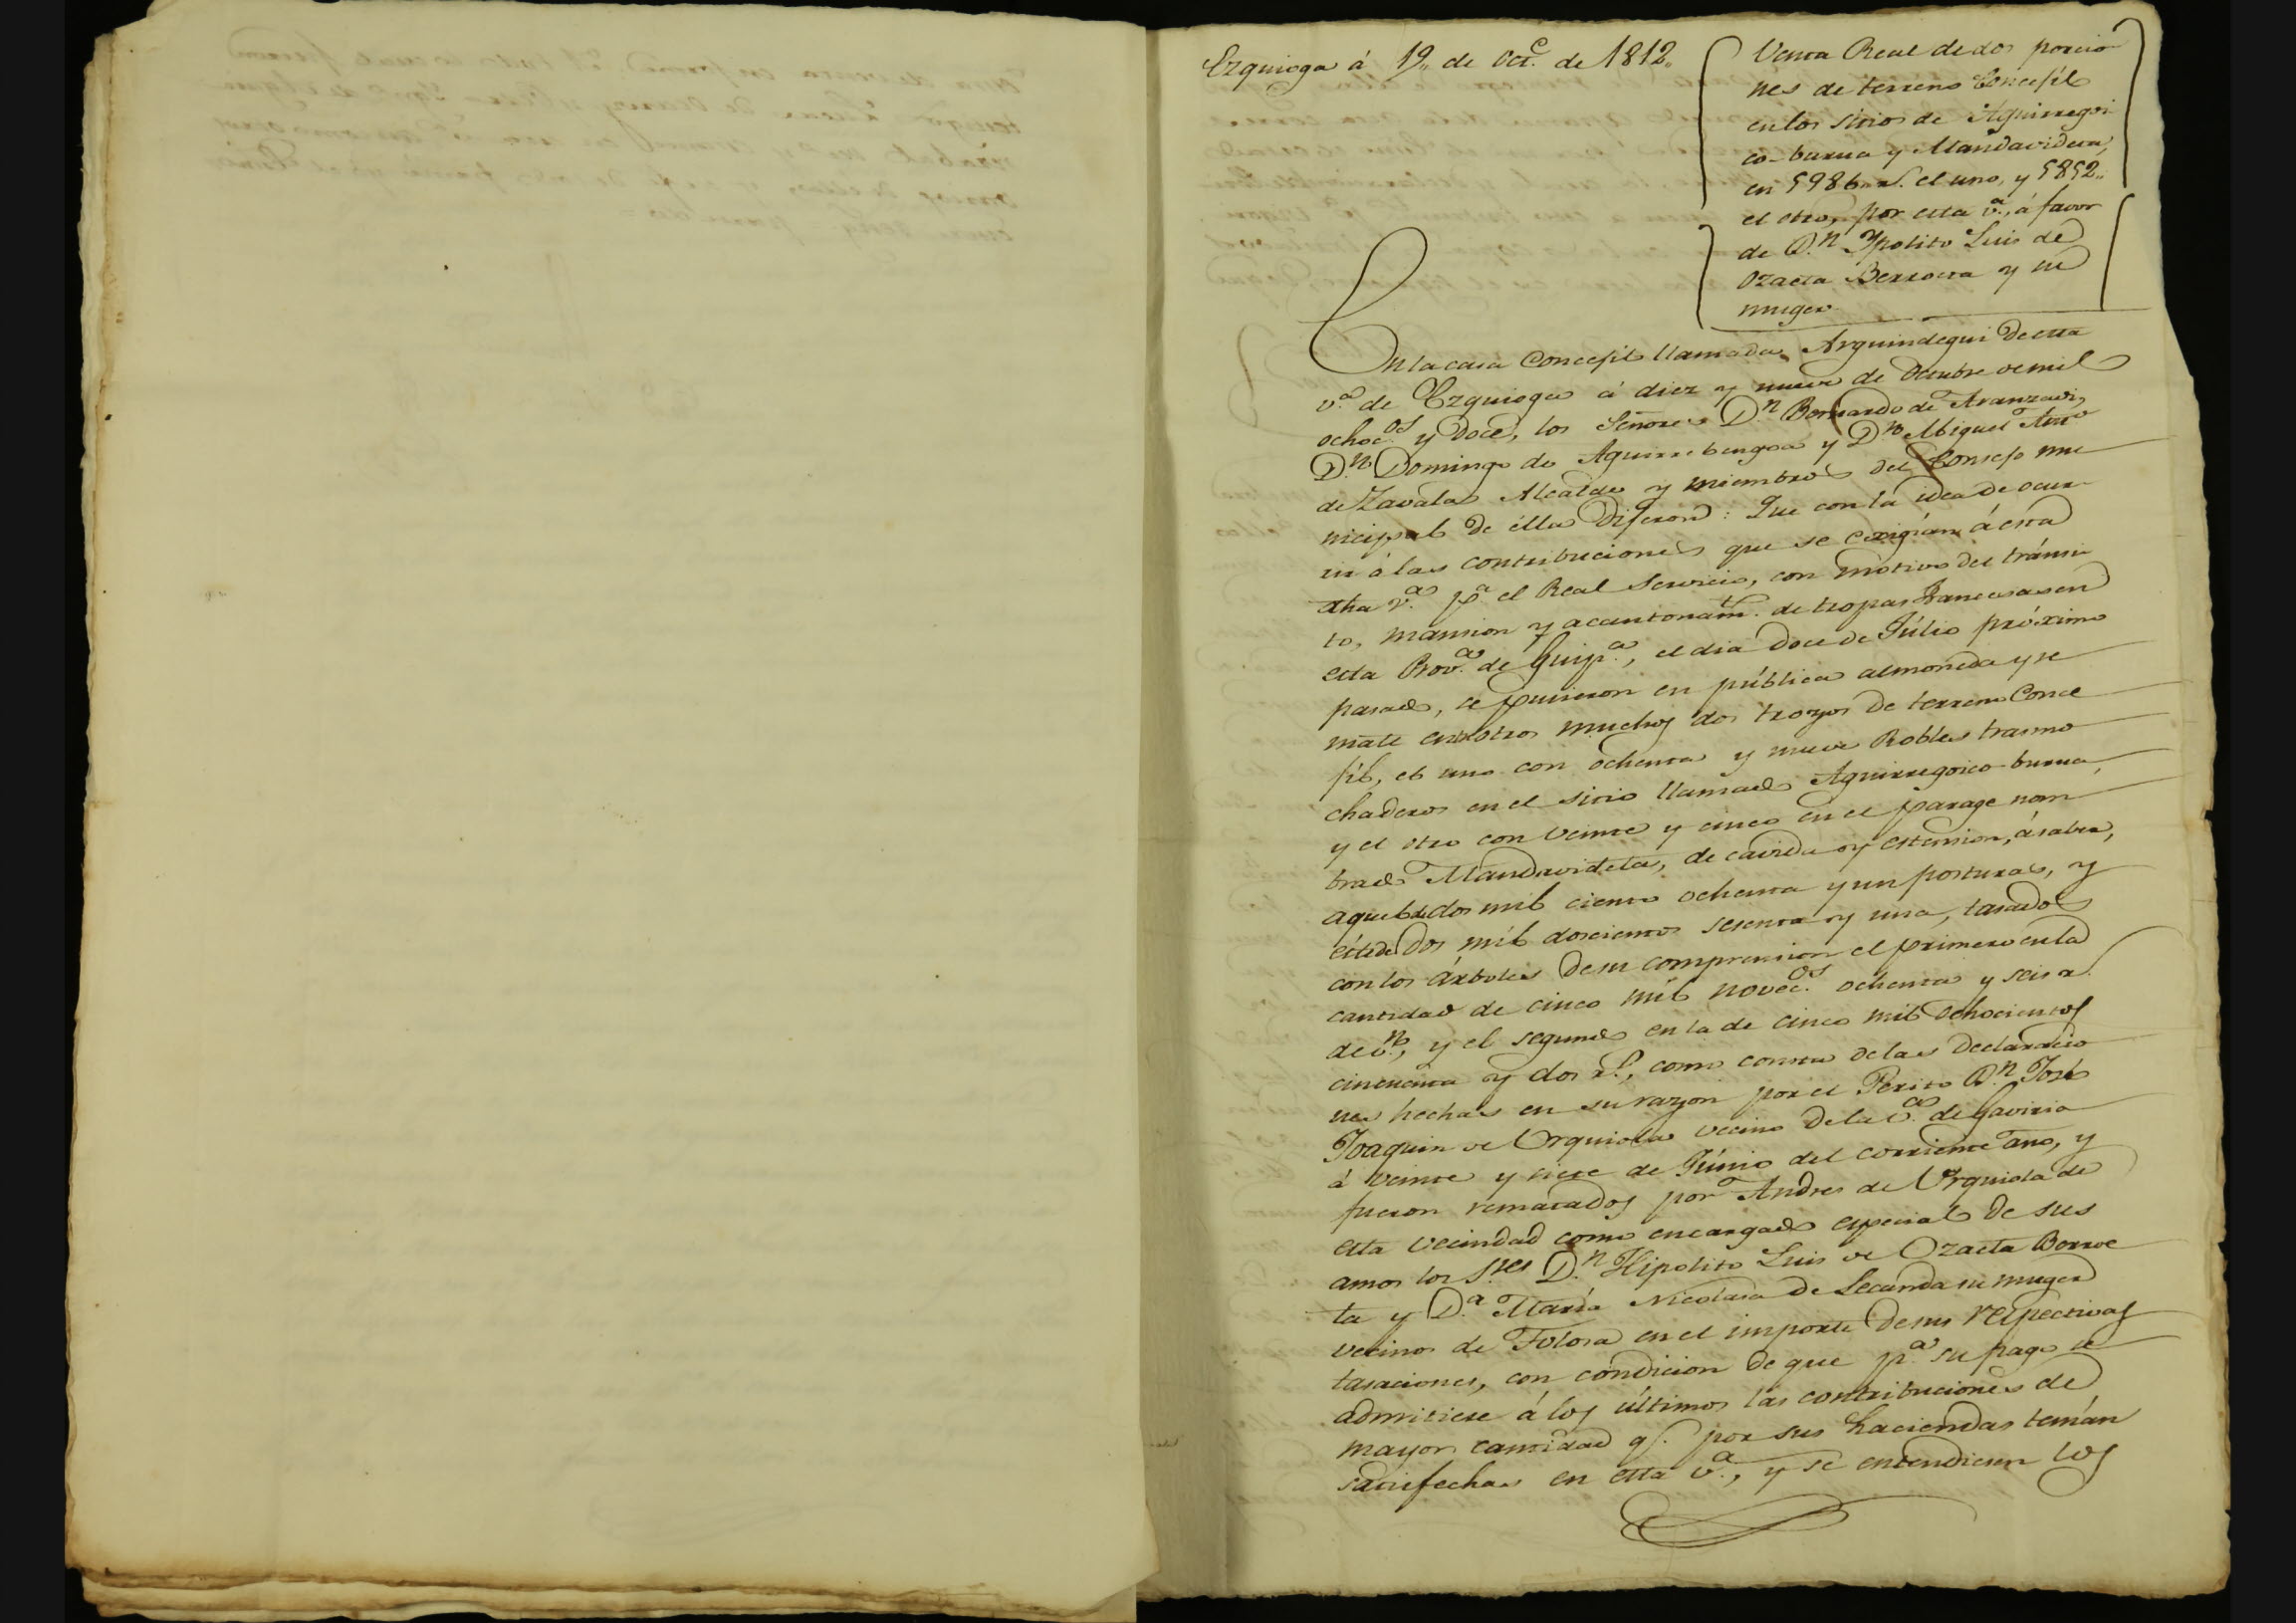 Ezquioga á 19,, de Oct.e de 1812,,
Venta Real de dos porcio
nes de terreno Concejíl
en los sitios de Aguirregoi
co-burua y Mandavideta,
en 5986,, r.s el uno, y 5852,,
el otro, por esta v.a, á favor
de D.n Ypolito Luis de
Ozaeta Berroeta y su
muger.
En la casa Concejil llamada Arguindegui de esta
v.a de Ezquioga á diez y nueve de Octubre de mil
ochoc.os y doce, los Señores D.n Bernardo de Aranzadi,
D.n Domingo de Aguirrebengoa y D.n Miguel Ant.o
de Zavala Alcalde y miembros del Consejo mu
nicipal de élla Dijeron: Que con la idea de ocur
rir á las contribuciones que se exigían á esta
dha v.a p.a el Real Servicio, con motivo del tránsi
to, mansion y acantonam.to de tropas Francesas en
esta Prov.a de Guip.a, el dia doce de Júlio próximo
pasado, se pusieron en pública almoneda y re
mate entre otros muchos dos trozos de terreno Conce
jíl, el uno con ochenta y nueve Robles trasmo
chaderos en el sitio llamado Aguirregoico-burua,
y el otro con veinte y cinco en el parage nom
brado Mandavideta, de cavida y estension, á saber,
aquel de dos mil ciento ochenta y un posturas, y
éste de dos mil doscientos sesenta y una, tasados
con los árboles de su comprension el primero en la
cantidad de cinco mil novec.os ochenta y seis r.s
de v.n, y el segundo en la de cinco mil ochocientos
cincuenta y dos r.s, como consta de las declaracio
nes hechas en su razon por el Perito D.n José
Joaquin de Urquiola vecino de la v.a de Gaviria
á veinte y siete de Júnio del corriente año, y
fueron rematados por Andres de Urquiola de
esta vecindad como encargado especial de sus
amos los S.res D.n Hipolito Luis de Ozaeta Berroe
ta y D.a María Nicolasa de Lecanda su muger
vecinos de Tolosa en el importe de sus respectivas
tasaciones, con condicion de que p.a su pago se
admitiese á los últimos las contribuciones de
mayor cantidad q.e por sus haciendas tenían
satisfechas en esta v.a, y se entendiesen los